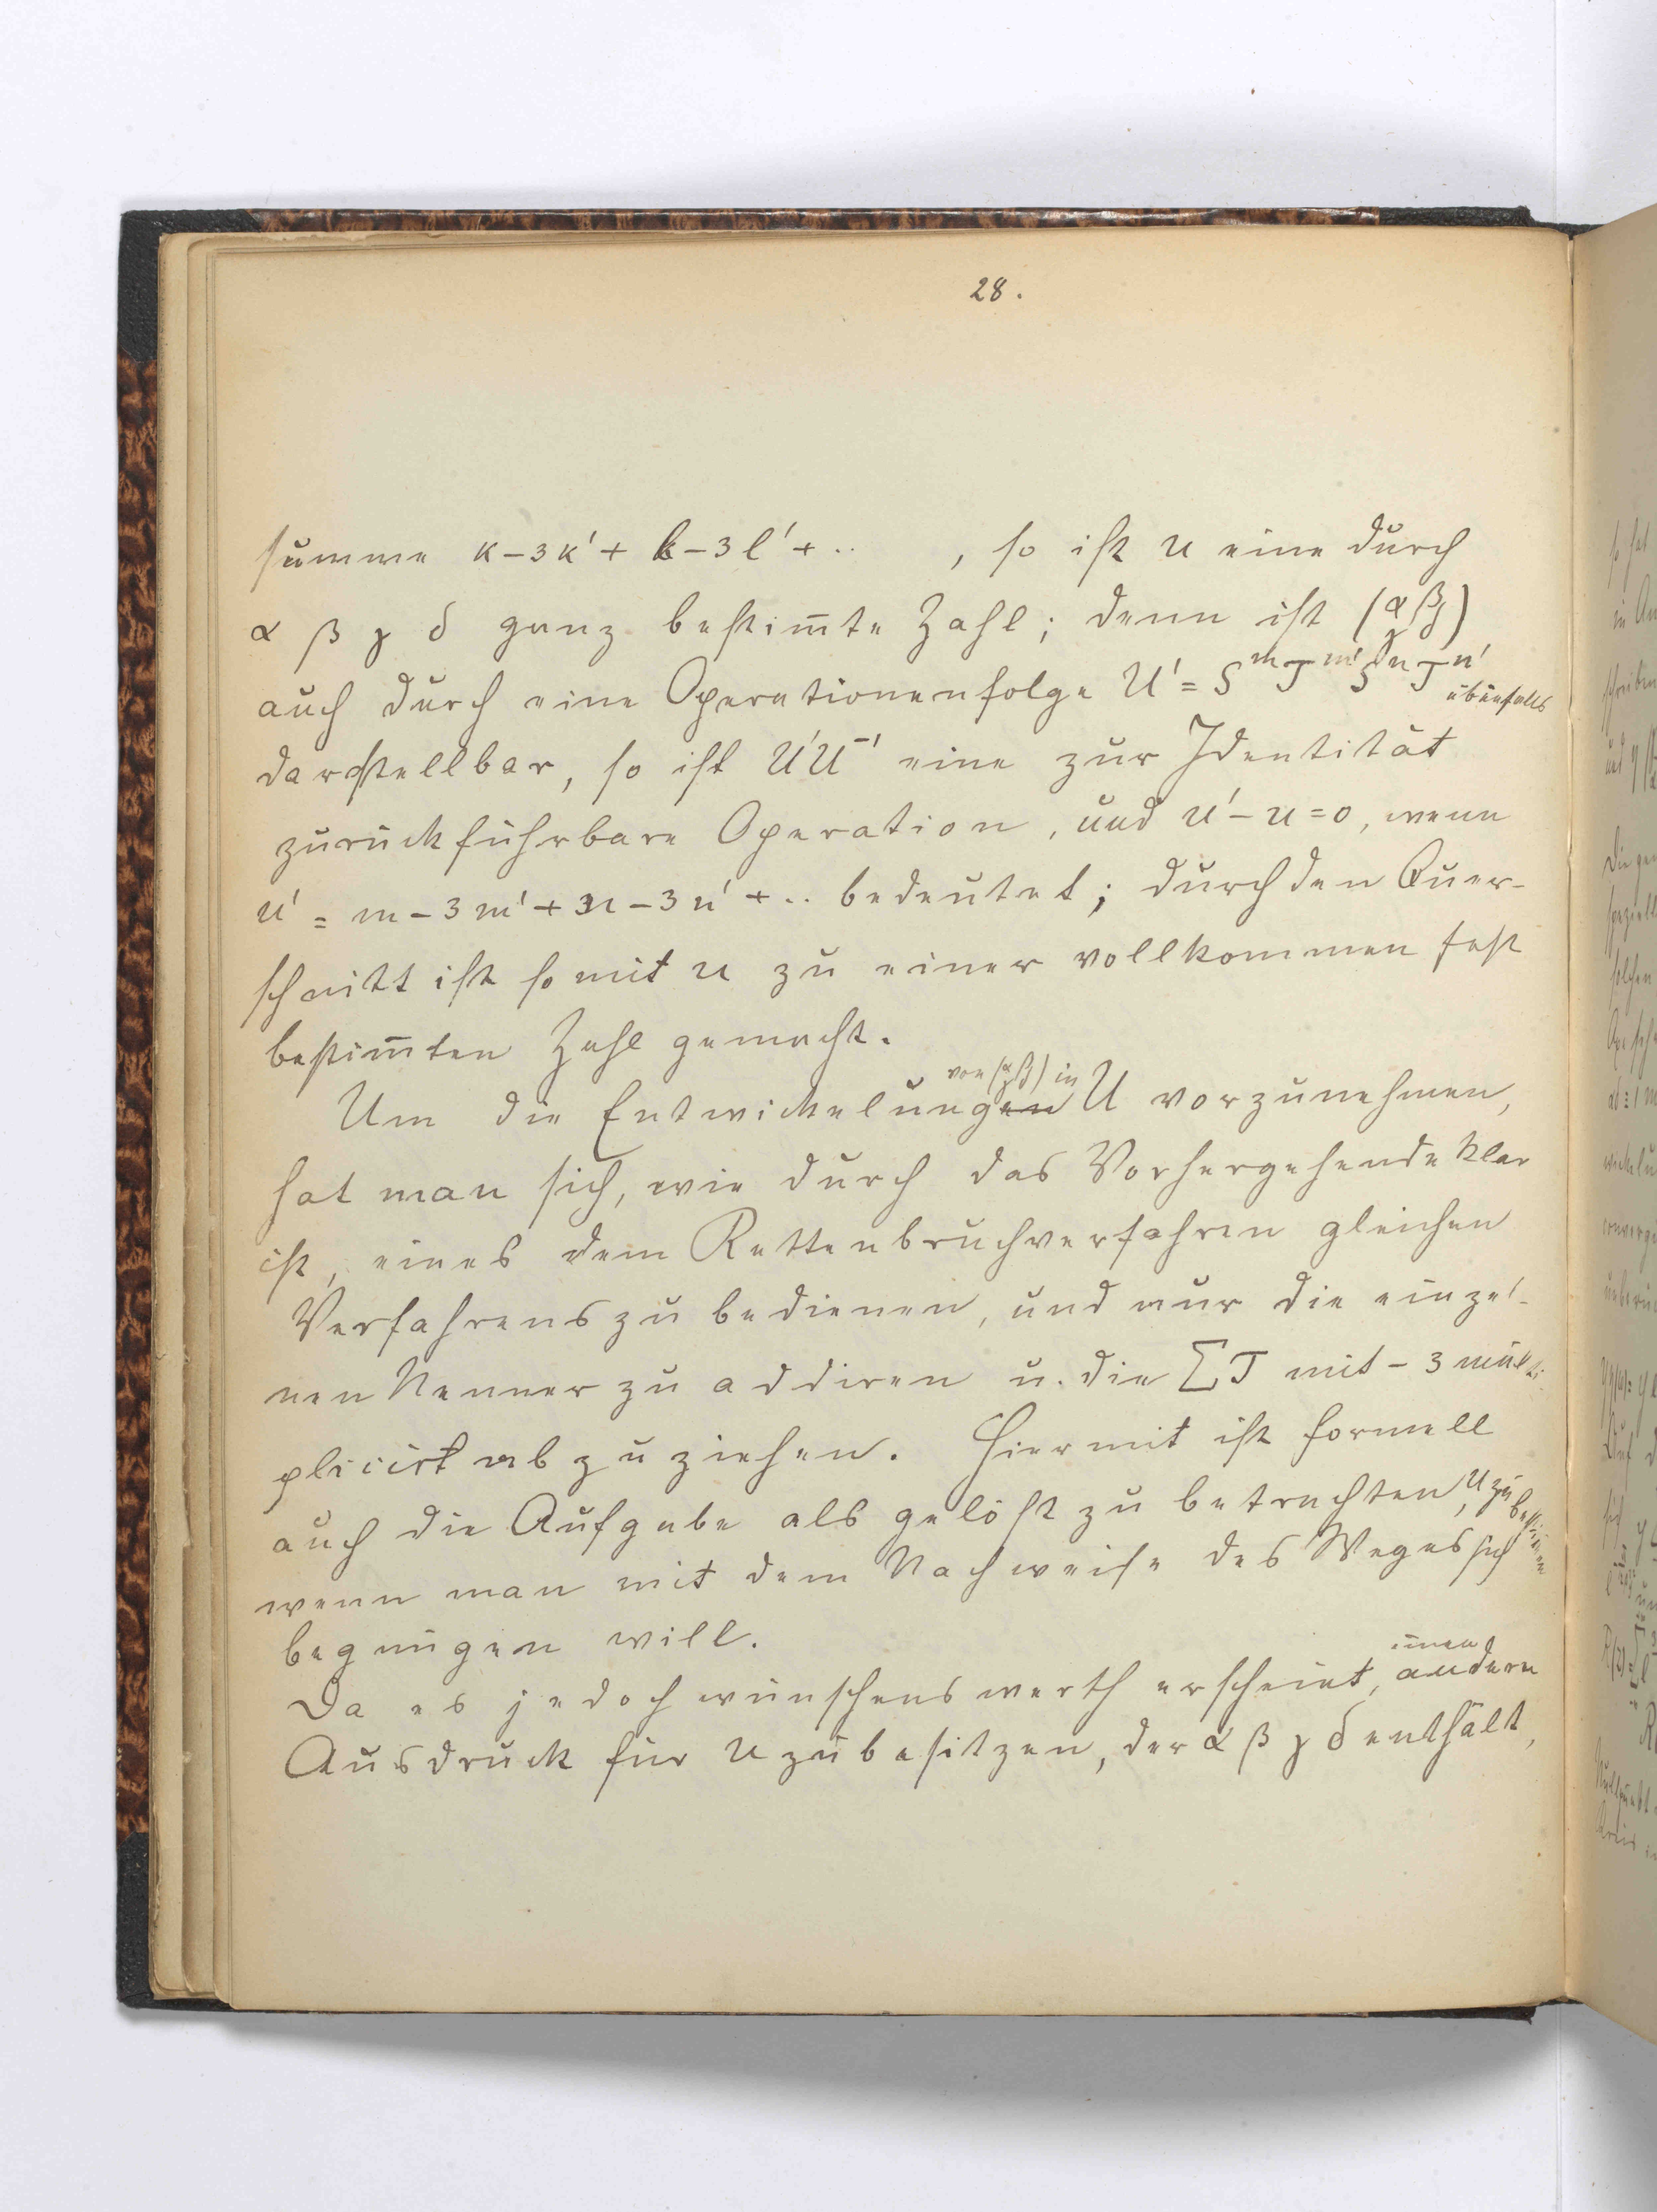 28.
summe κ-3κ'+ l-3l'+ .. , so ist u eine durch
α β γ δ ganz bestim̄te Zahl; denn ist (α β γ δ)
auch durch eine Operationenfolge U' = S^m T^m' S^n T^n' ebenfalls
darstellbar, so ist U'U^-1 eine zur Identität
zurückführbare Operation, und u'-u=0, wenn
u' = m-3m'+n-3n'+.. bedeutet; durch den Quer-
schnitt ist somit u zu einer vollkommen fest
bestim̄ten Zahl gemacht.
von (α β γ δ) in
Um die Entwickelungen U vorzunehmen,
hat man sich, wie durch das Vorhergehende klar
ist, eines dem Kettenbruchverfahren gleichen
Verfahrens zu bedienen, und nur die einzel-
nen Nenner zu addiren u. die ΣT mit -3 multi-
plicirt abzuziehen. Hiermit ist formell
auch die Aufgabe als gelöst zu betrachten, u zu bestim̄en
wenn man mit dem Nachweise des Weges sich
begnügen will.
einen
Da es jedoch wünschenswerth erscheint, andern
Ausdruck für u zu besitzen, der α β γ δ enthält,